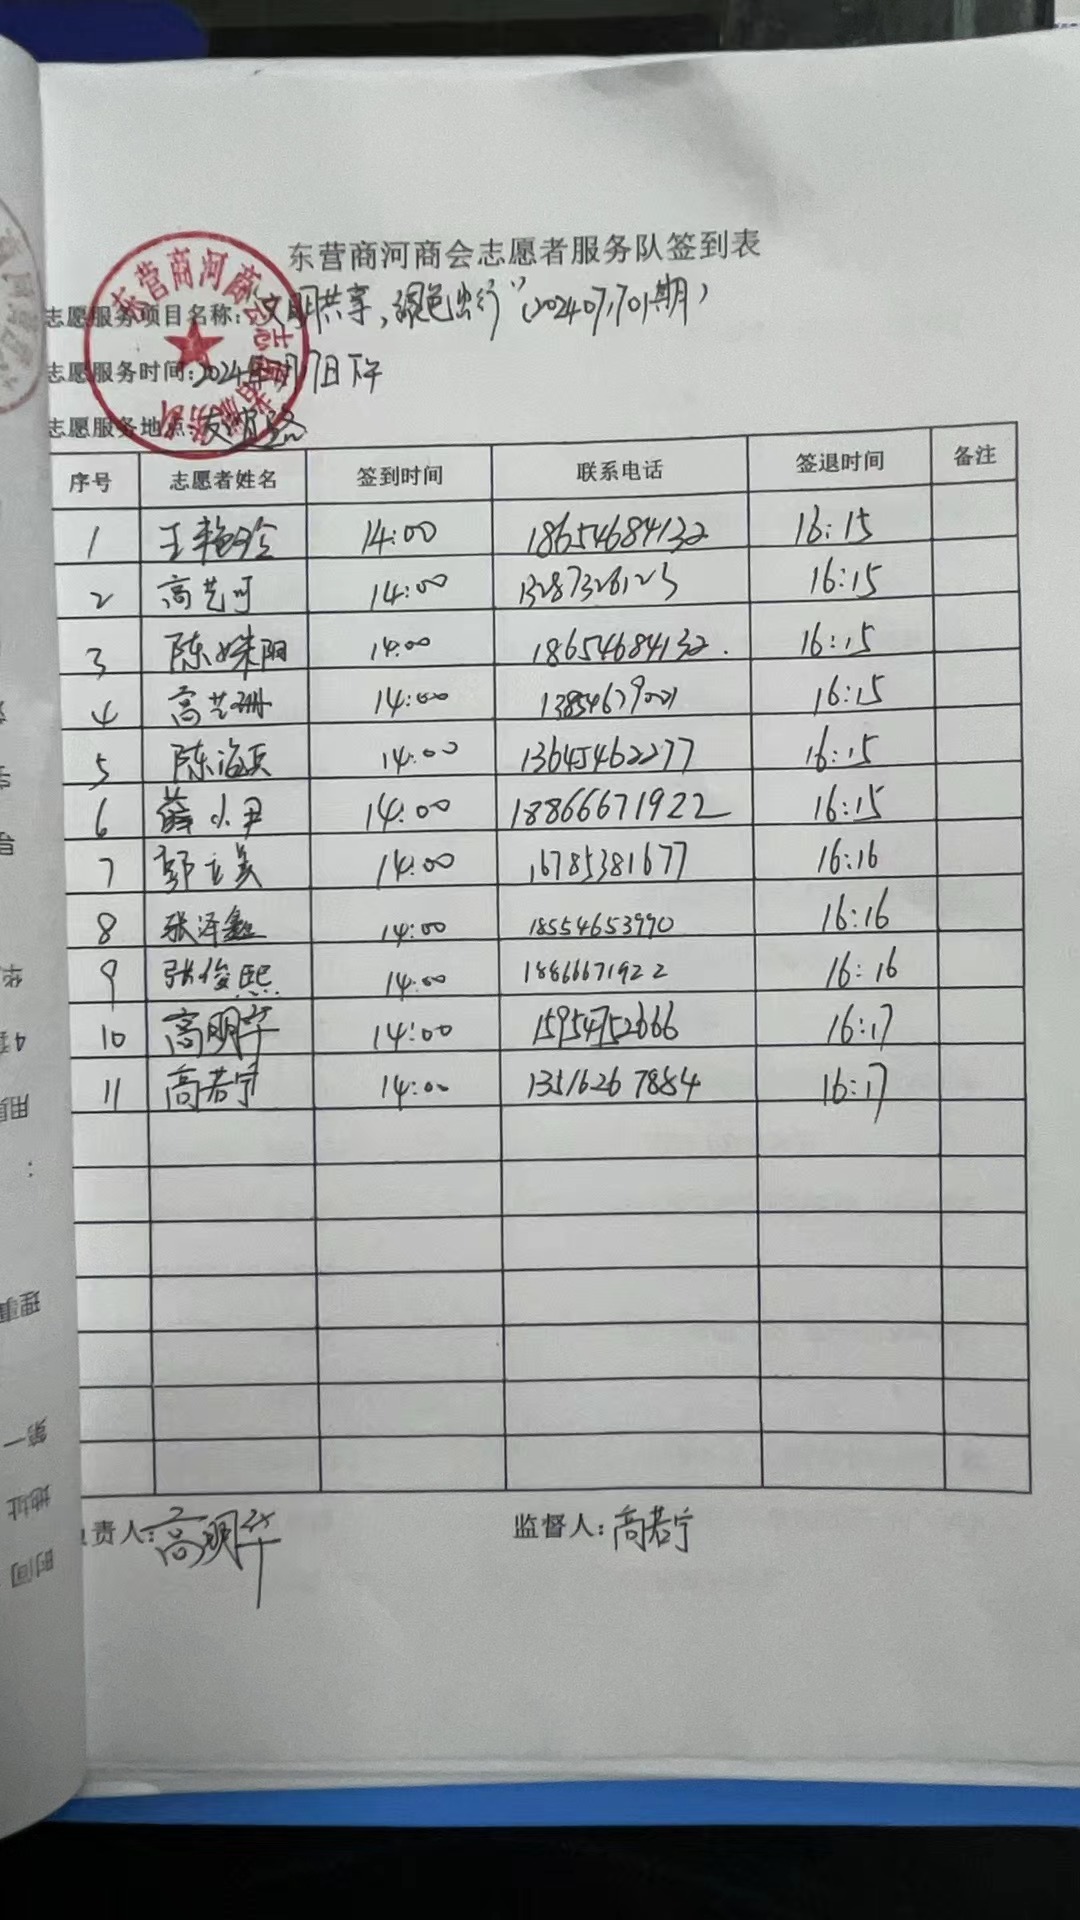 东营商河商会志愿者服务队签到表
志愿服务项目名称:"文明共享,绿色出行"(2024071701期)
志愿服务时间:2024年7月17日下午
志愿服务地点:
东营商河商会志愿者服务队
序号 志愿者姓名 签到时间 联系电话 签退时间 备注
1 王艳玲 14:00 18654684132 16:15
2 高艺可 14:00 13287326123 16:15
3 陈姝阳 14:00 18654684132. 16:15
4 高艺珊 14:00 13854679001 16:15
5 陈海英 14:00 13645462277 16:15
6 薛小尹 14:00 18866671922 16:15
7 郭立昊 14:00 16785381677 16:16
8 张泽鑫 14:00 18554653990 16:16
9 张俊熙 14:00 18866671922 16:16
10 高明华 14:00 15954752666 16:17
11 高若宁 14:00 13516267884 16:17
责人:高明华 监督人:高若宁
理事
第一
地址
时间